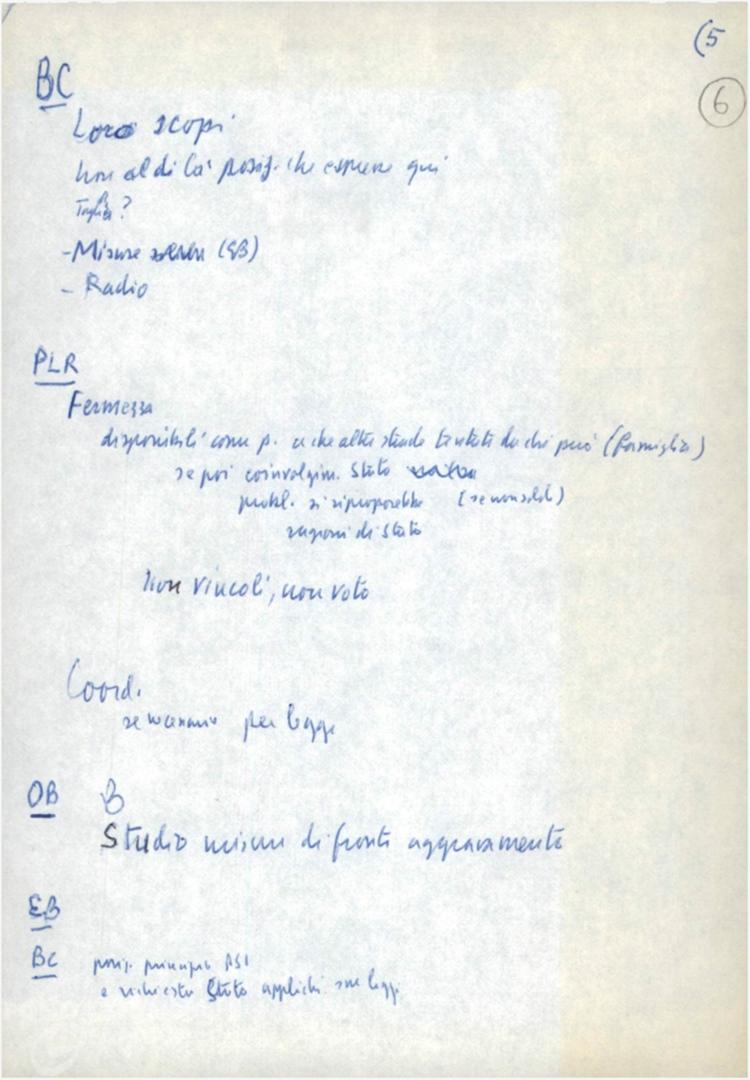 (5
6
BC
Loro scopi
non al di là posiz. che espresse qui
Taglia?
- Misure (EB)
- Radio
PLR
Fermezza
disponibili come p. a che altre strade tentate da chi può (famiglia)
se poi coinvolgim. Stato
probl. si riproporrebbe (se non sold)
ragioni di Stato
Non vincoli, non voto
Coord.
se necessario per leggi
OB B
Studio misure di fronte aggravamento
EB
BC posiz. principio PSI
e richiesta Stato applichi sue leggi